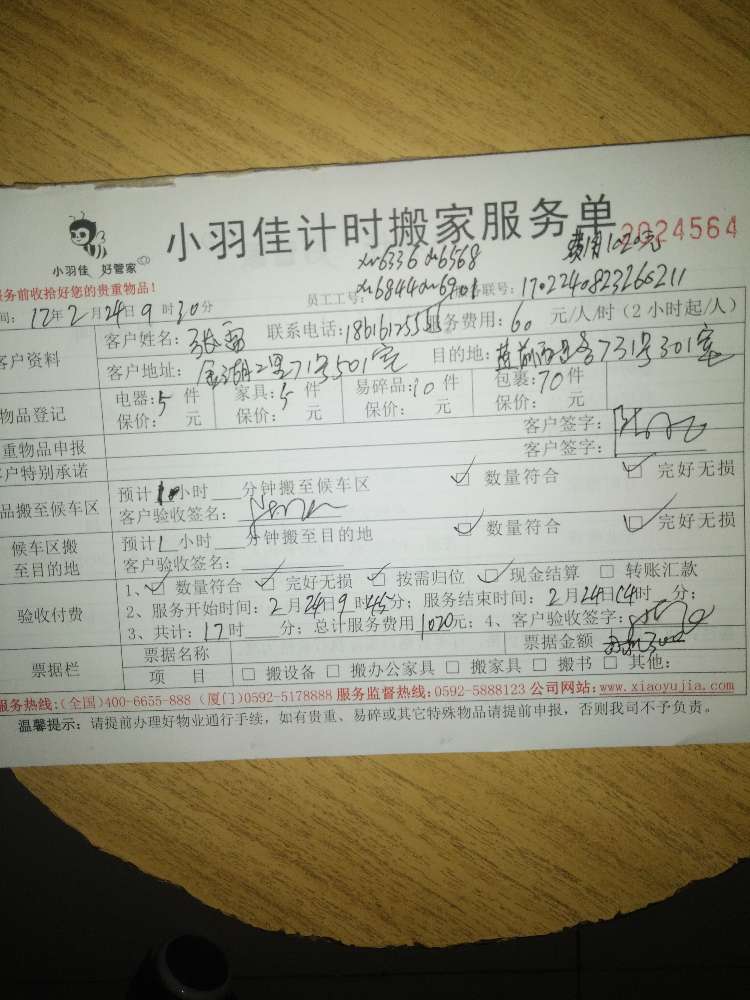 小羽佳计时搬家服务单
小羽佳 好管家
2024564
费用1020元
xm6336 xm6568
服务前收拾好您的贵重物品!
员工工号: xm6844 xm6901 联号: 1702240823260211
间: 17年2月24日9时30分
客户资料
客户姓名: 张雷 联系电话: 服务费用: 60 元/人/时 (2小时起/人)
客户地址: 金湖二里71号501室 目的地: 731号301室
物品登记
电器: 5 件 家具: 5 件 易碎品: 10 件 包裹: 70 件
保价: 元 保价: 元 保价: 元 保价: 元
重物品申报 客户签字:
客户特别承诺 客户签字:
品搬至候车区
预计 1 小时 分钟搬至候车区 ☑ 数量符合 ☑ 完好无损
客户验收签名:
候车区搬
至目的地
预计 1 小时 分钟搬至目的地 ☑ 数量符合 ☑ 完好无损
客户验收签名:
验收付费
1、☑ 数量符合 ☑ 完好无损 ☑ 按需归位 ☑ 现金结算 □ 转账汇款
2、服务开始时间: 2月24日9时45分; 服务结束时间: 2月24日14时 分;
3、共计: 17时 分; 总计服务费用1020元; 4、客户验收签字:
票据栏
票据名称 票据金额
项 目 □ 搬设备 □ 搬办公家具 □ 搬家具 □ 搬书 □ 其他:
服务热线:(全国)400-6655-888 (厦门)0592-5178888 服务监督热线:0592-5888123 公司网站:www.xiaoyujia.com
温馨提示: 请提前办理好物业通行手续, 如有贵重、易碎或其它特殊物品请提前申报, 否则我司不予负责。